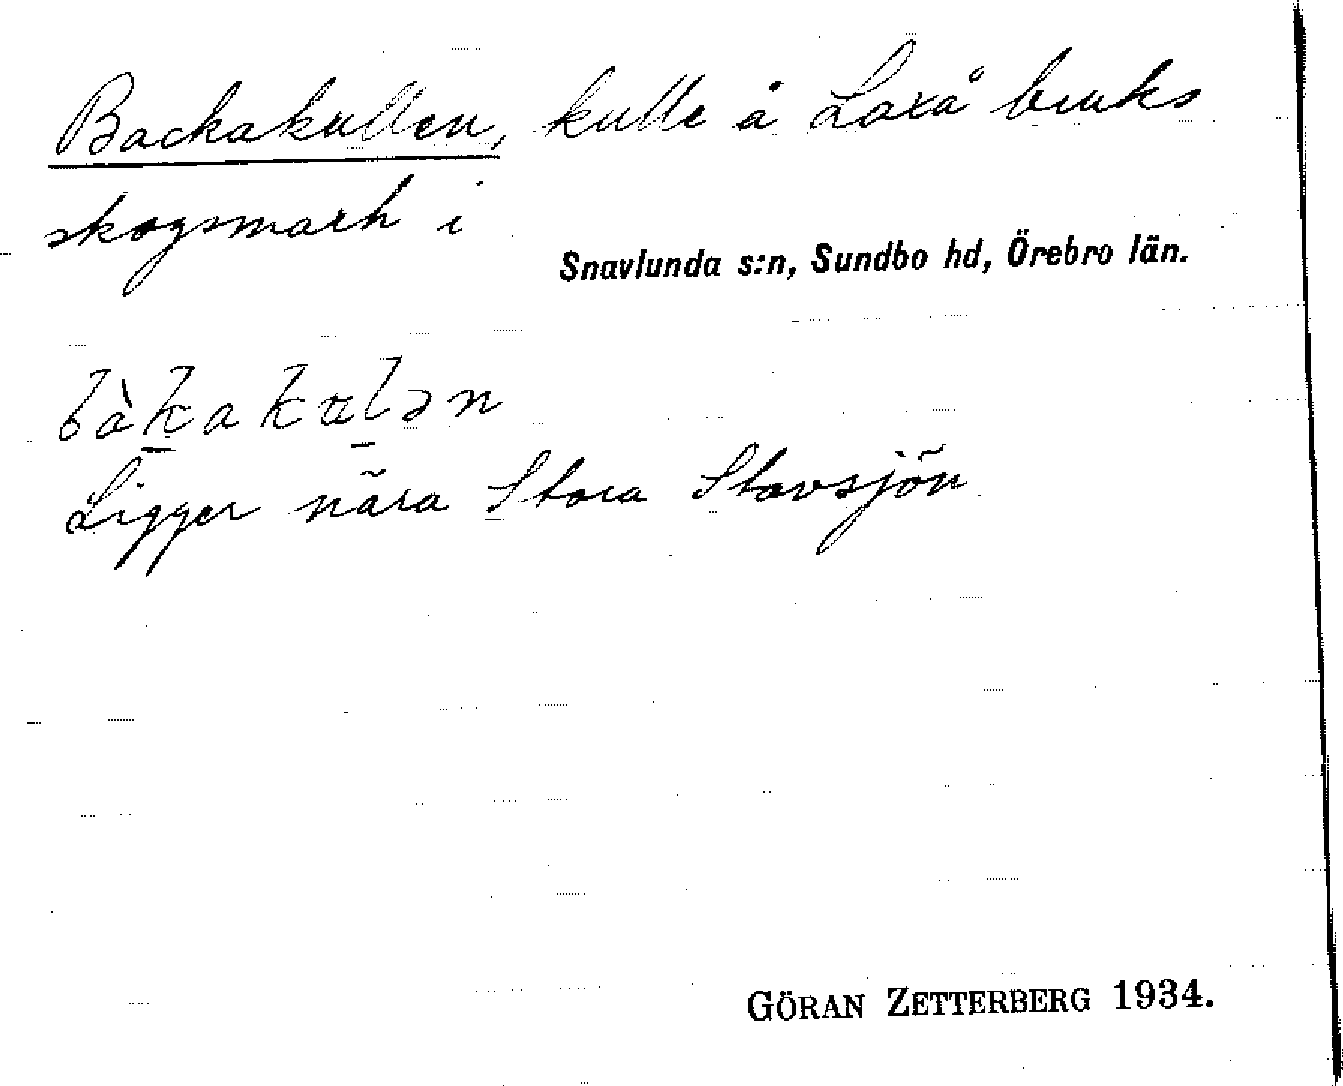 Backakullen, kulle å Laxå bruks
skogsmark i
Snavlunda s:n, Sundbo hd, Örebro län.
bàk̲akɷl̲ən
Ligger nära Stora Stavsjön
GÖRAN ZETTERBERG 1934.